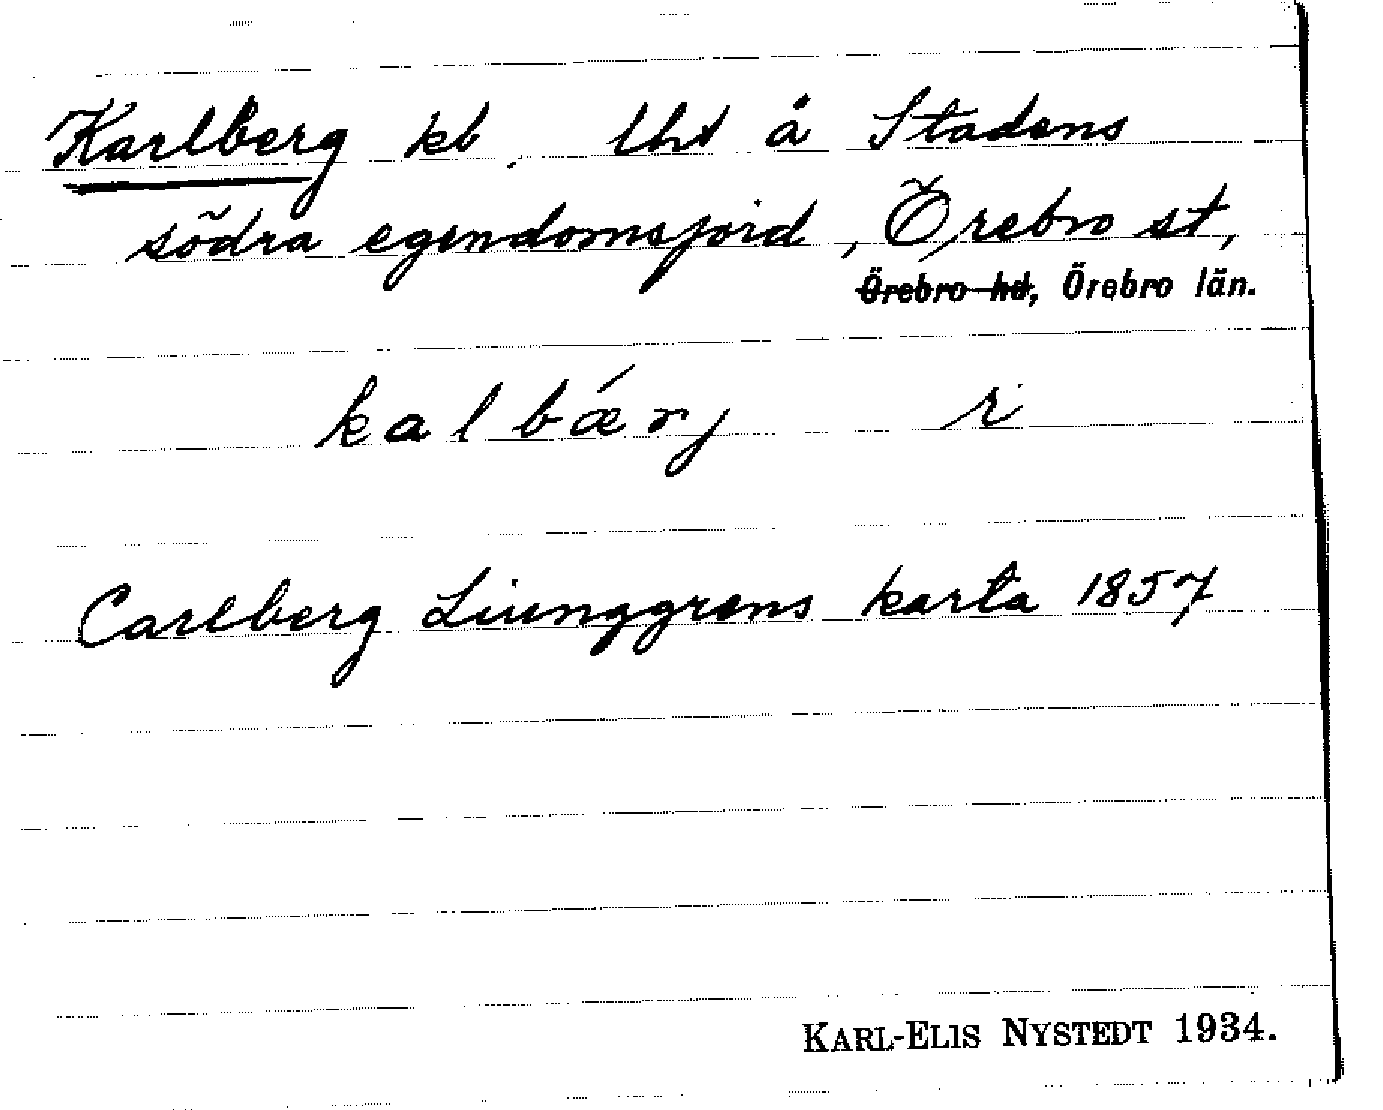 Karlberg kb, lht å Stadens
södra egendomsjord, Örebro st,
Örebro hd, Örebro län.
kalbǽrj i
Carlberg Liunggrens karta 1857
KARL-ELIS NYSTEDT 1934.